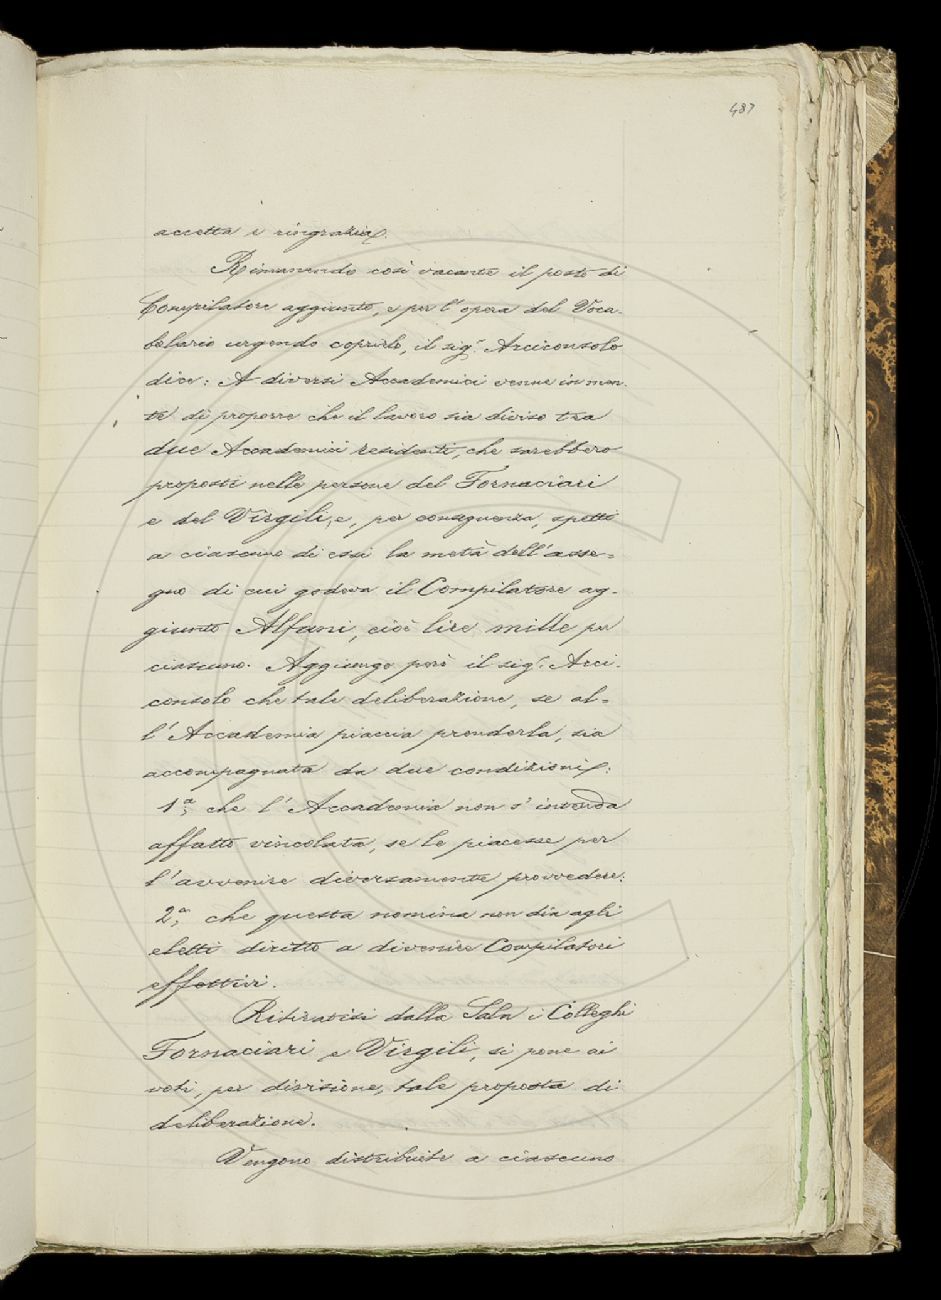 487
accetta e ringrazia.
Rimanendo così vacante il posto di
Compilatore aggiunto, e per l'opera del Voca-
bolario urgendo coprirlo, il sig.r Arciconsolo
dice: A diversi Accademici venne in men-
te di proporre che il lavoro sia diviso tra
due Accademici residenti, che sarebbero
proposti nelle persone del Fornaciari
e del Virgili; e, per conseguenza, spetti
a ciascuno di essi la metà dell'asse-
gno di cui godeva il Compilatore ag-
giunto Alfani, cioè lire mille per
ciascuno. Aggiunge però il sig.r Arci-
consolo che tale deliberazione, se al-
l'Accademia piaccia prenderla, sia
accompagnata da due condizioni:
1.a che l'Accademia non s'intenda
affatto vincolata, se le piacesse per
l'avvenire diversamente provvedere:
2.a che questa nomina non dia agli
eletti diritto a divenire Compilatori
effettivi.
Ritiratisi dalla Sala i Colleghi
Fornaciari e Virgili, si pone ai
voti, per divisione, tale proposta di
deliberazione.
Vengono distribuite a ciascuno